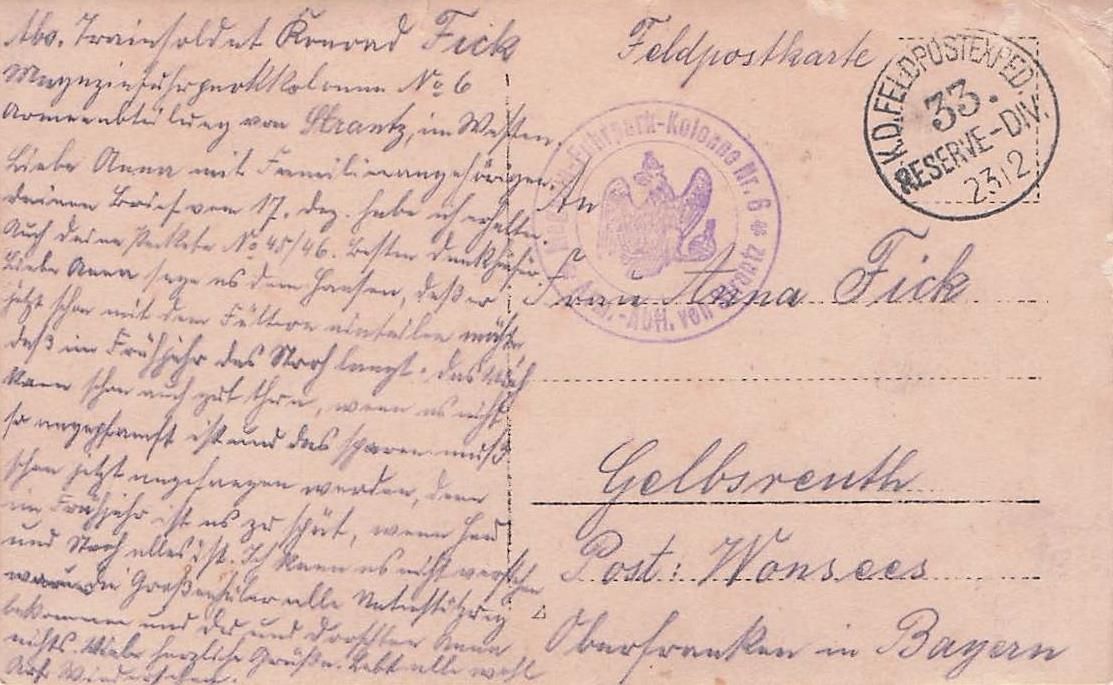 Abs. Trainsoldat Konrad Fick
Magazinfuhrparkkolonne No 6
Armeeabteilung von Strantz, im Westen.
Liebe Anna mit Familienangehörigen.
deinen Brief vom 17. dez. habe ich erhalten.
Auch deine Pakete No 45/46. Besten dank hiefür
Liebe Anna sage es dem Hansen, daß er
jetzt schon mit dem Füttern einteilen möchte
daß im Frühjahr das Stroh langt. das Vieh
kann schon auch gut thun, wenn es nicht
so angepframft ist und das sparen muß
schon jetzt angefangen werden, denn
im Frühjahr ist es zu spät, wenn Heu
und Stroh alles ist. Ich kann es nicht verstehen
warum die Großenhüler alle Unterstützung
bekommen und du und
nichts. Viele herzliche Grüße. Lebt alle wohl
Auf Wiedersehen.
Feldpostkarte
K.D.FELDPOSTEXPED.
33.
RESERVE-DIV.
23.12
Fuhrpark-Kolonne Nr. 6
Arm.-Abtl. von Strantz
An
Frau Anna Fick
Gelbsreuth
Post: Wonsees
Oberfranken in Bayern